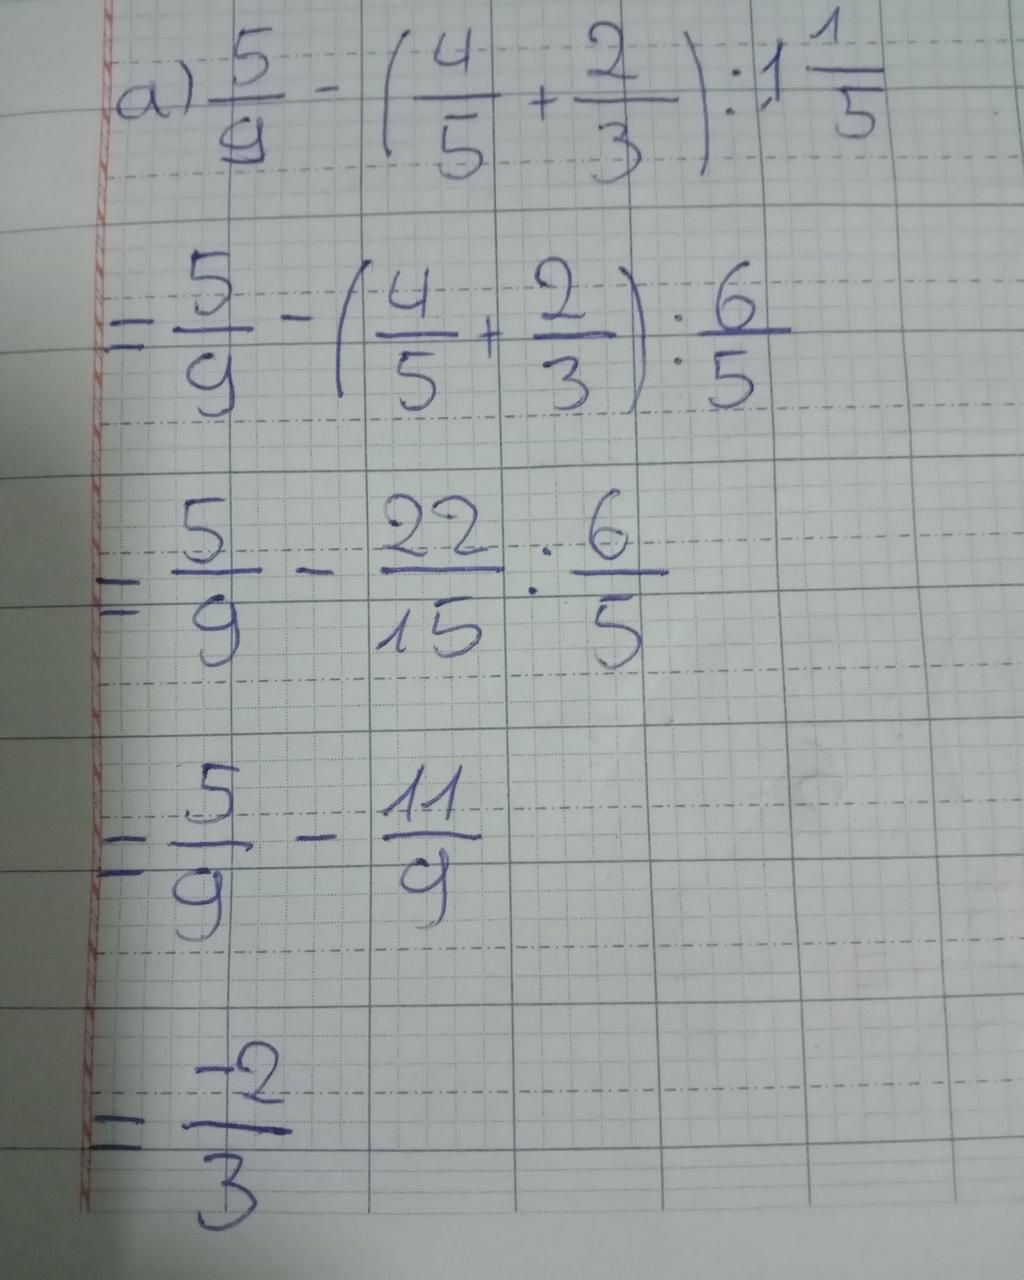 a) 5/9 - (4/5 + 2/3) : 1 1/5
= 5/9 - (4/5 + 2/3) : 6/5
= 5/9 - 22/15 : 6/5
= 5/9 - 11/9
= -2/3